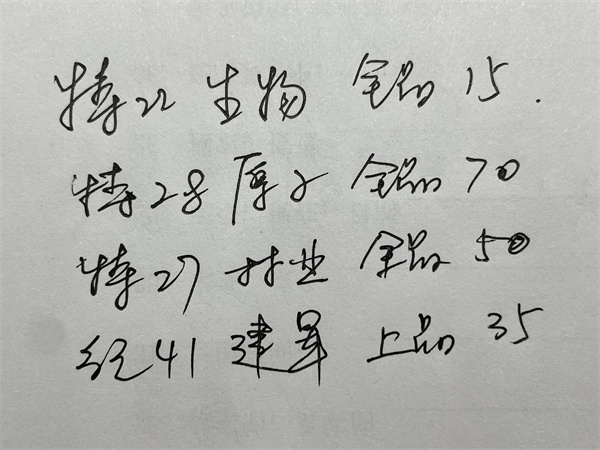 特22 生物 全品 15.
特28 原子 全品 70
特27 林业 全品 50
纪41 建军 上品 35